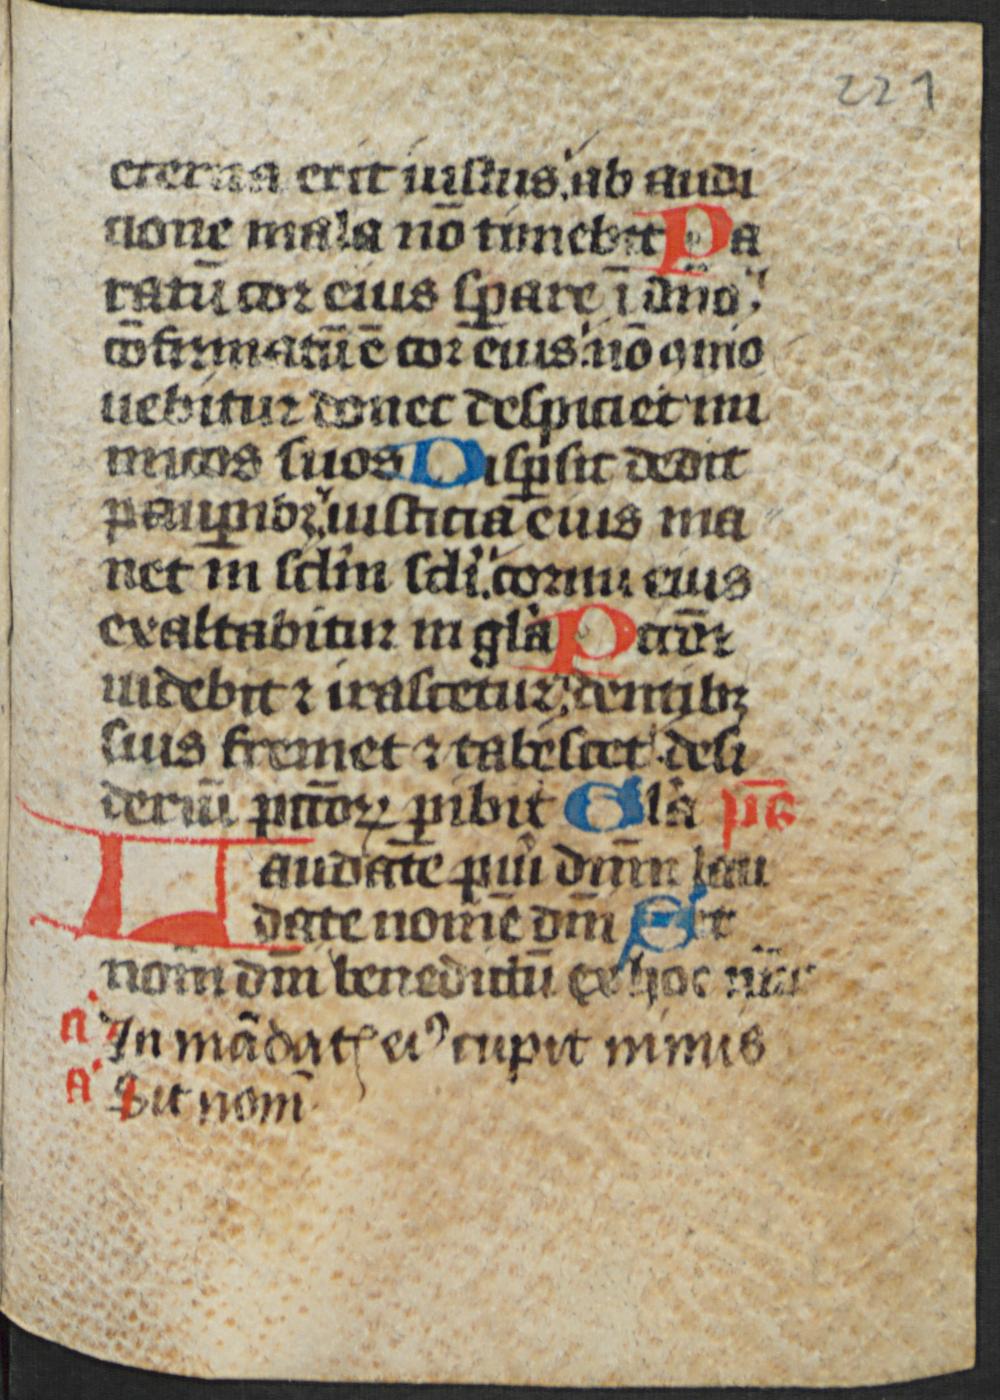 221
eterna erit iustus ab audi
cione mala nō timebit Pa
ratū cor eius sꝑare ī dn̄o
cōfirmatū ē cor eius nō ꝯmo
uebitur donec despiciet ini
micos suos Disꝑsit dedit
pauꝑibꝫ iusticia eius ma
net in sclm̄ scli cornu eius
exaltabitur in gla Pctōr
uidebit ⁊ irascetur dentibꝫ
suis fremet ⁊ tabescet desi
deriū pctōꝝ ꝑibit Gla ps̄
Laudate pui dnm̄ lau
date nomē dni Sit
nom̄ dni benedictū ex hoc
a In mādatꝭ eiꝰ cupit nimis
a Sit nom̄